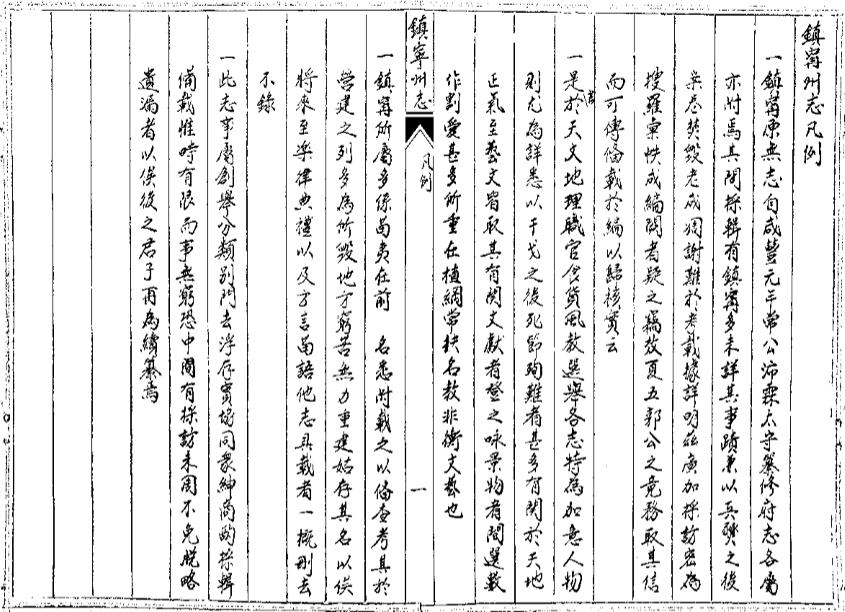 鎮寧州志凡例
一鎮寧原無志自咸豐元年常公沛霖太守纂修府志各屬
亦附焉其間採輯有鎮寧多未詳其事蹟兼以兵燹之後
案卷焚毀老成凋謝難於考載據詳明茲廣加採訪密為
搜羅彙帙成編闕者疑之竊效夏五郭公之意務取其信
而可傳備載於編以歸核實云
一是於天文地理職官食貨風教選舉各志特為加意人物
則尤為詳悉以干戈之後死節殉難者甚多有關於天地
正氣至藝文省取其有關文獻者登之咏景物者間選數
作割愛甚多所重在植綱常扶名教非衡文藝也
鎮寧州志
凡例
一
一鎮寧所屬多係苗夷在前 名悉附載之以備查考其於
營建之列多為所毀地方窮苦無力重建姑存其名以俟
將來至樂律典禮以及方言苗語他志具載者一概刪去
不錄
一此志事屬創舉分類別門去浮存實協同眾紳商酌採輯
備載惟時有限而事無窮恐中間有採訪未周不免脫略
遺漏者以俟後之君子再為續纂焉